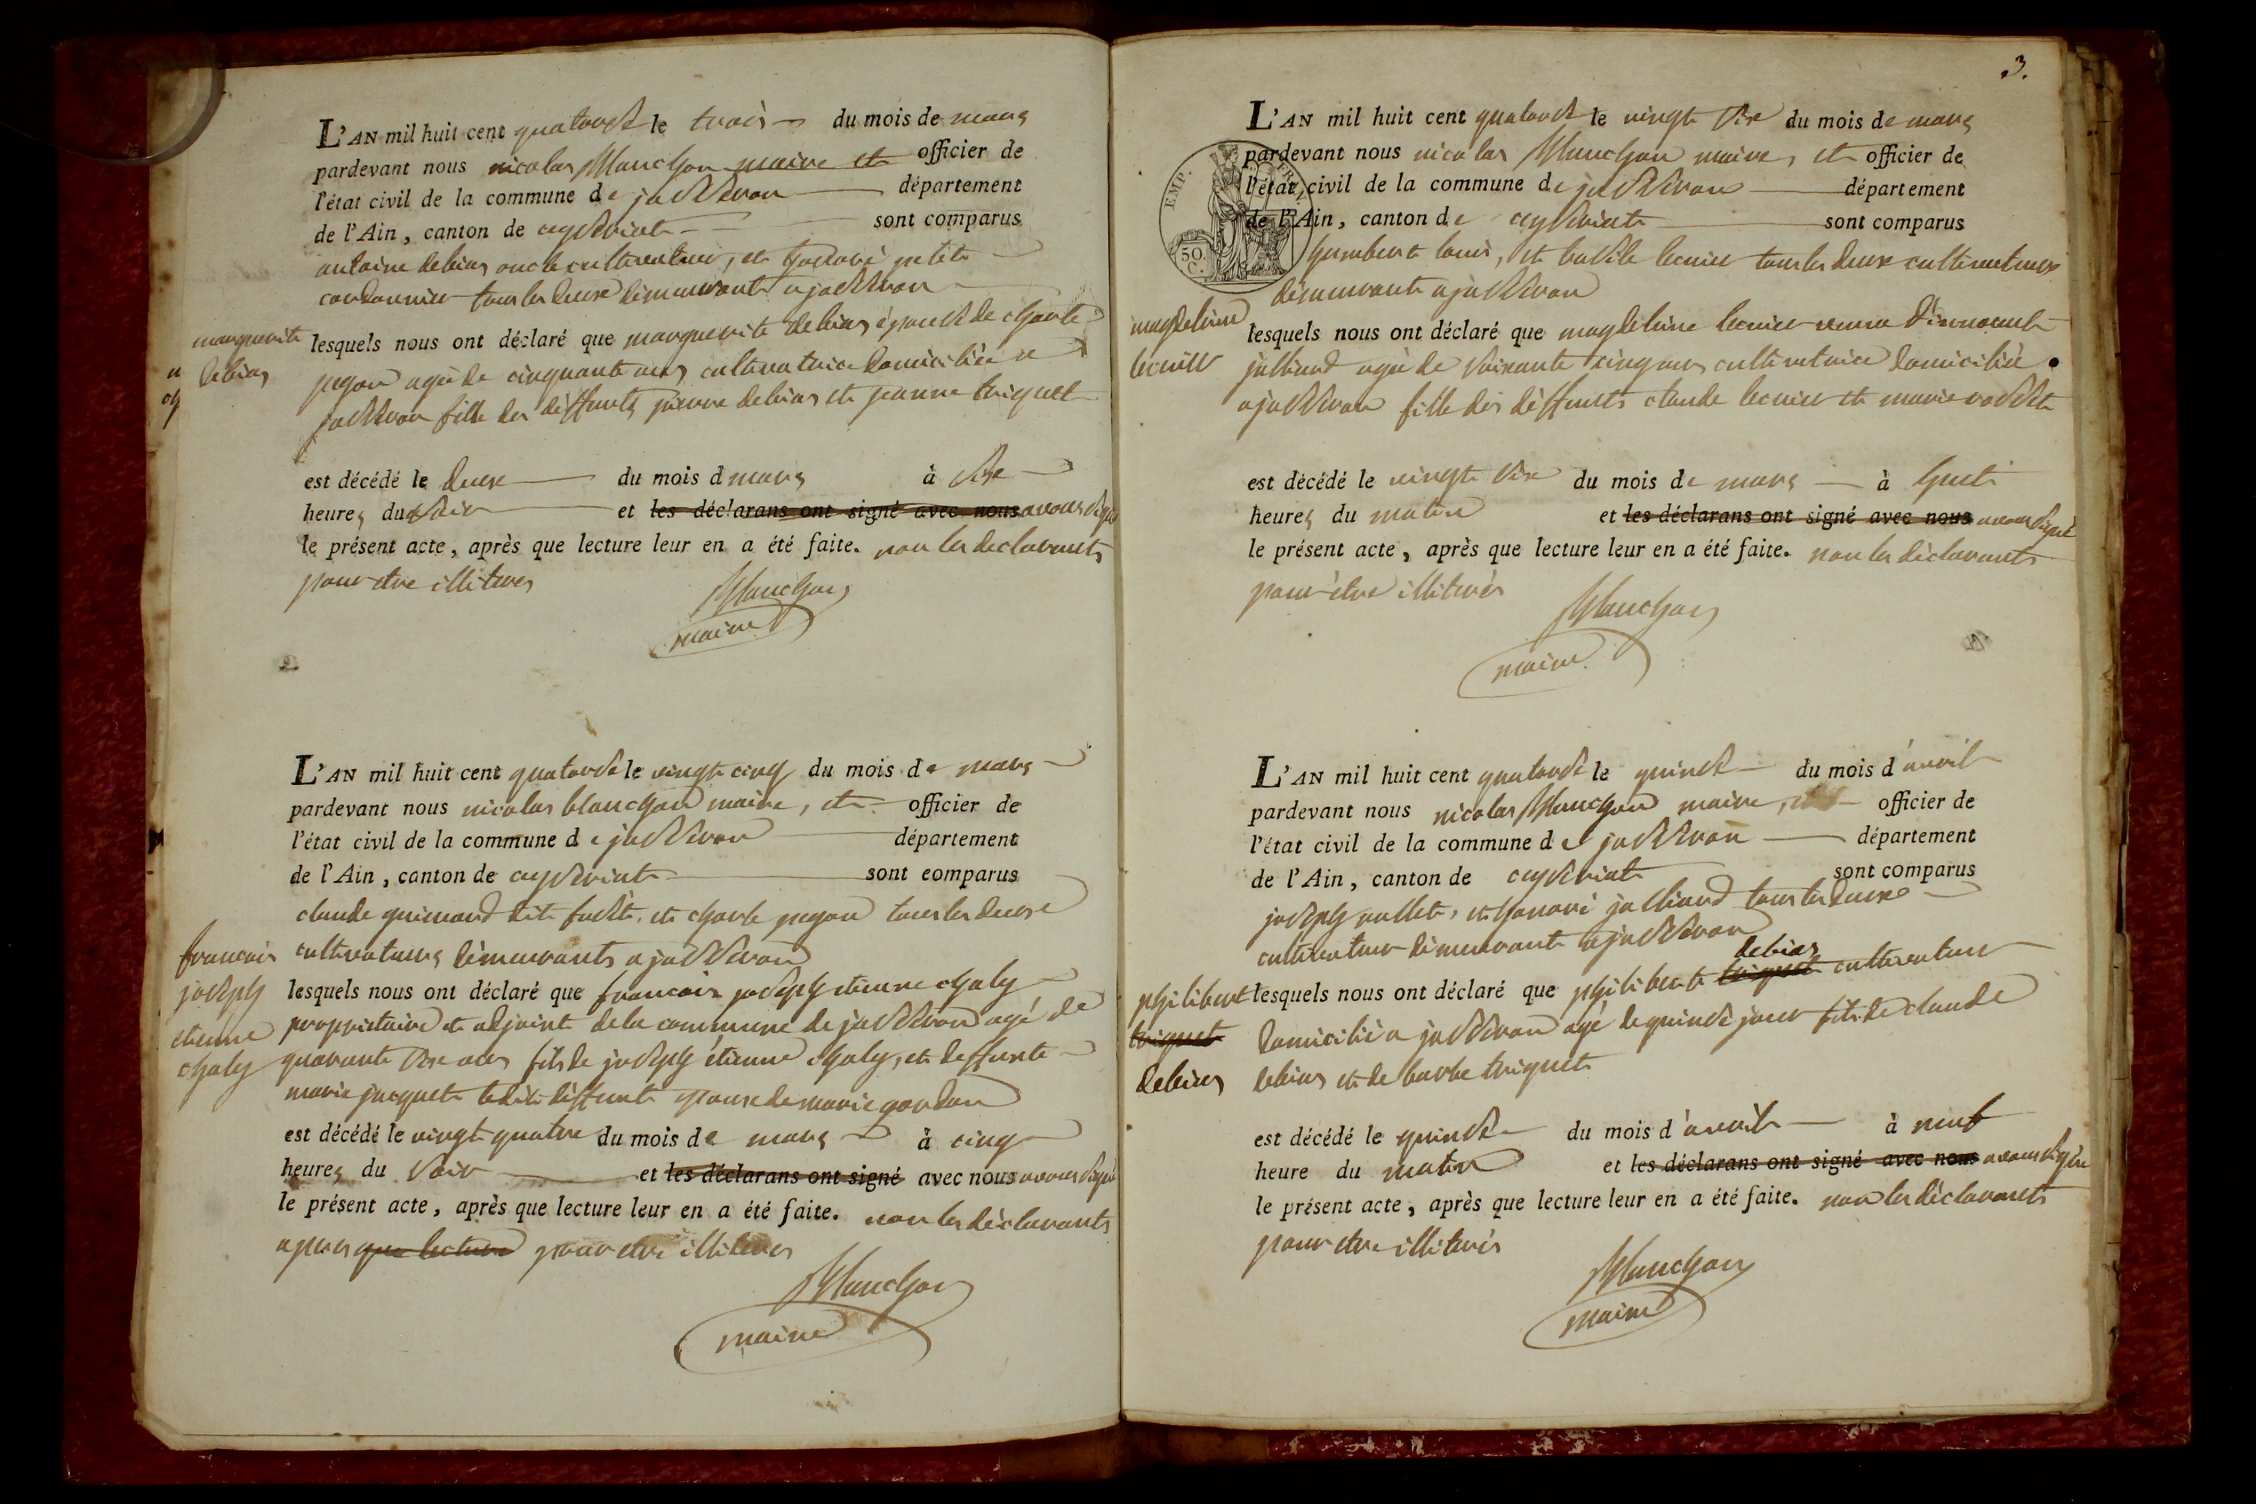 L'AN mil huit cent quatorze le trois du mois de mars
pardevant nous nicolas Blanchon maire et officier de
l'état civil de la commune de jasseron département
de l'Ain, canton de ceyseriat sont comparus
antoine debias oncle cultivateur, et honoré petit
cordonnier tous les deux demeurant a jasseron
marguerite
debias
lesquels nous ont déclaré que marguerite debias épouse de charle
pegon agée de cinquante ans cultivatrice domiciliée a
jasseron fille des deffunts pierre debias et jeanne triquet
est décédé le deux du mois d mars à six
heures du soir et les déclarans ont signé avec nous avons signé
le présent acte, après que lecture leur en a été faite. non les declarants
pour etre illiteres
Blanchon
maire
L'AN mil huit cent quatorze le vingt cinq du mois de mars
pardevant nous nicolas blanchon maire, et officier de
l'état civil de la commune de jasseron département
de l'Ain, canton de ceyseriat sont comparus
claude guinard dit et charle pegon tous les deux
cultivateurs démeurants a jasseron
francois
joseph
etienne
chaly
lesquels nous ont déclaré que francois joseph etienne chaly
proprietaire et adjoint de la commune de jasseron agé de
quarante six ans fils de joseph étienne chaly, et deffunte
marie jacquet ledit déffunt epoux de marie gordon
est décédé le vingt quatre du mois de mars à cinq
heures du soir et les déclarans ont signé avec nous avons signé
le présent acte, après que lecture leur en a été faite. non les déclarants
apres que lecture pour etre illiteres
Blanchon
maire
3.
L'AN mil huit cent quatorze le vingt six du mois de mars
pardevant nous nicolas Blanchon maire, et officier de
l'état civil de la commune de jasseron département
de l'Ain, canton de ceyseriat sont comparus
EMP.
50
C.
humbert louis, et basile lecuier tous les deux cultivateurs
démeurants a jasseron
magdeleine
lecuier
lesquels nous ont déclaré que magdeleine lecuier veuve d'innocent
julliard agée de soixante cinq ans cultivatrice domiciliée
a jasseron fille des déffunts claude lecuier et marie rosset
est décédé le vingt six du mois de mars à huit
heures du matin et les déclarans ont signé avec nous avons signé
le présent acte, après que lecture leur en a été faite. non les déclarants
pour être illiterés
Blanchon
maire
L'AN mil huit cent quatorze le quinze du mois d'avril
pardevant nous nicolas Blanchon maire, et officier de
l'état civil de la commune de jasseron département
de l'Ain, canton de ceyseriat sont comparus
joseph nallet, et honoré julliard tous les deux
cultivateur démeurant a jasseron
philibert
triquet
debias
debias
lesquels nous ont déclaré que philibert triquet cultivateur
domicilié a jasseron agé de quinze jours fils de claude
debias et de barbe triquet
est décédé le quinze du mois d'avril à neuf
heure du matin et les déclarans ont signé avec nous avons signé
le présent acte, après que lecture leur en a été faite. non les déclarants
pour etre illiterés
Blanchon
maire